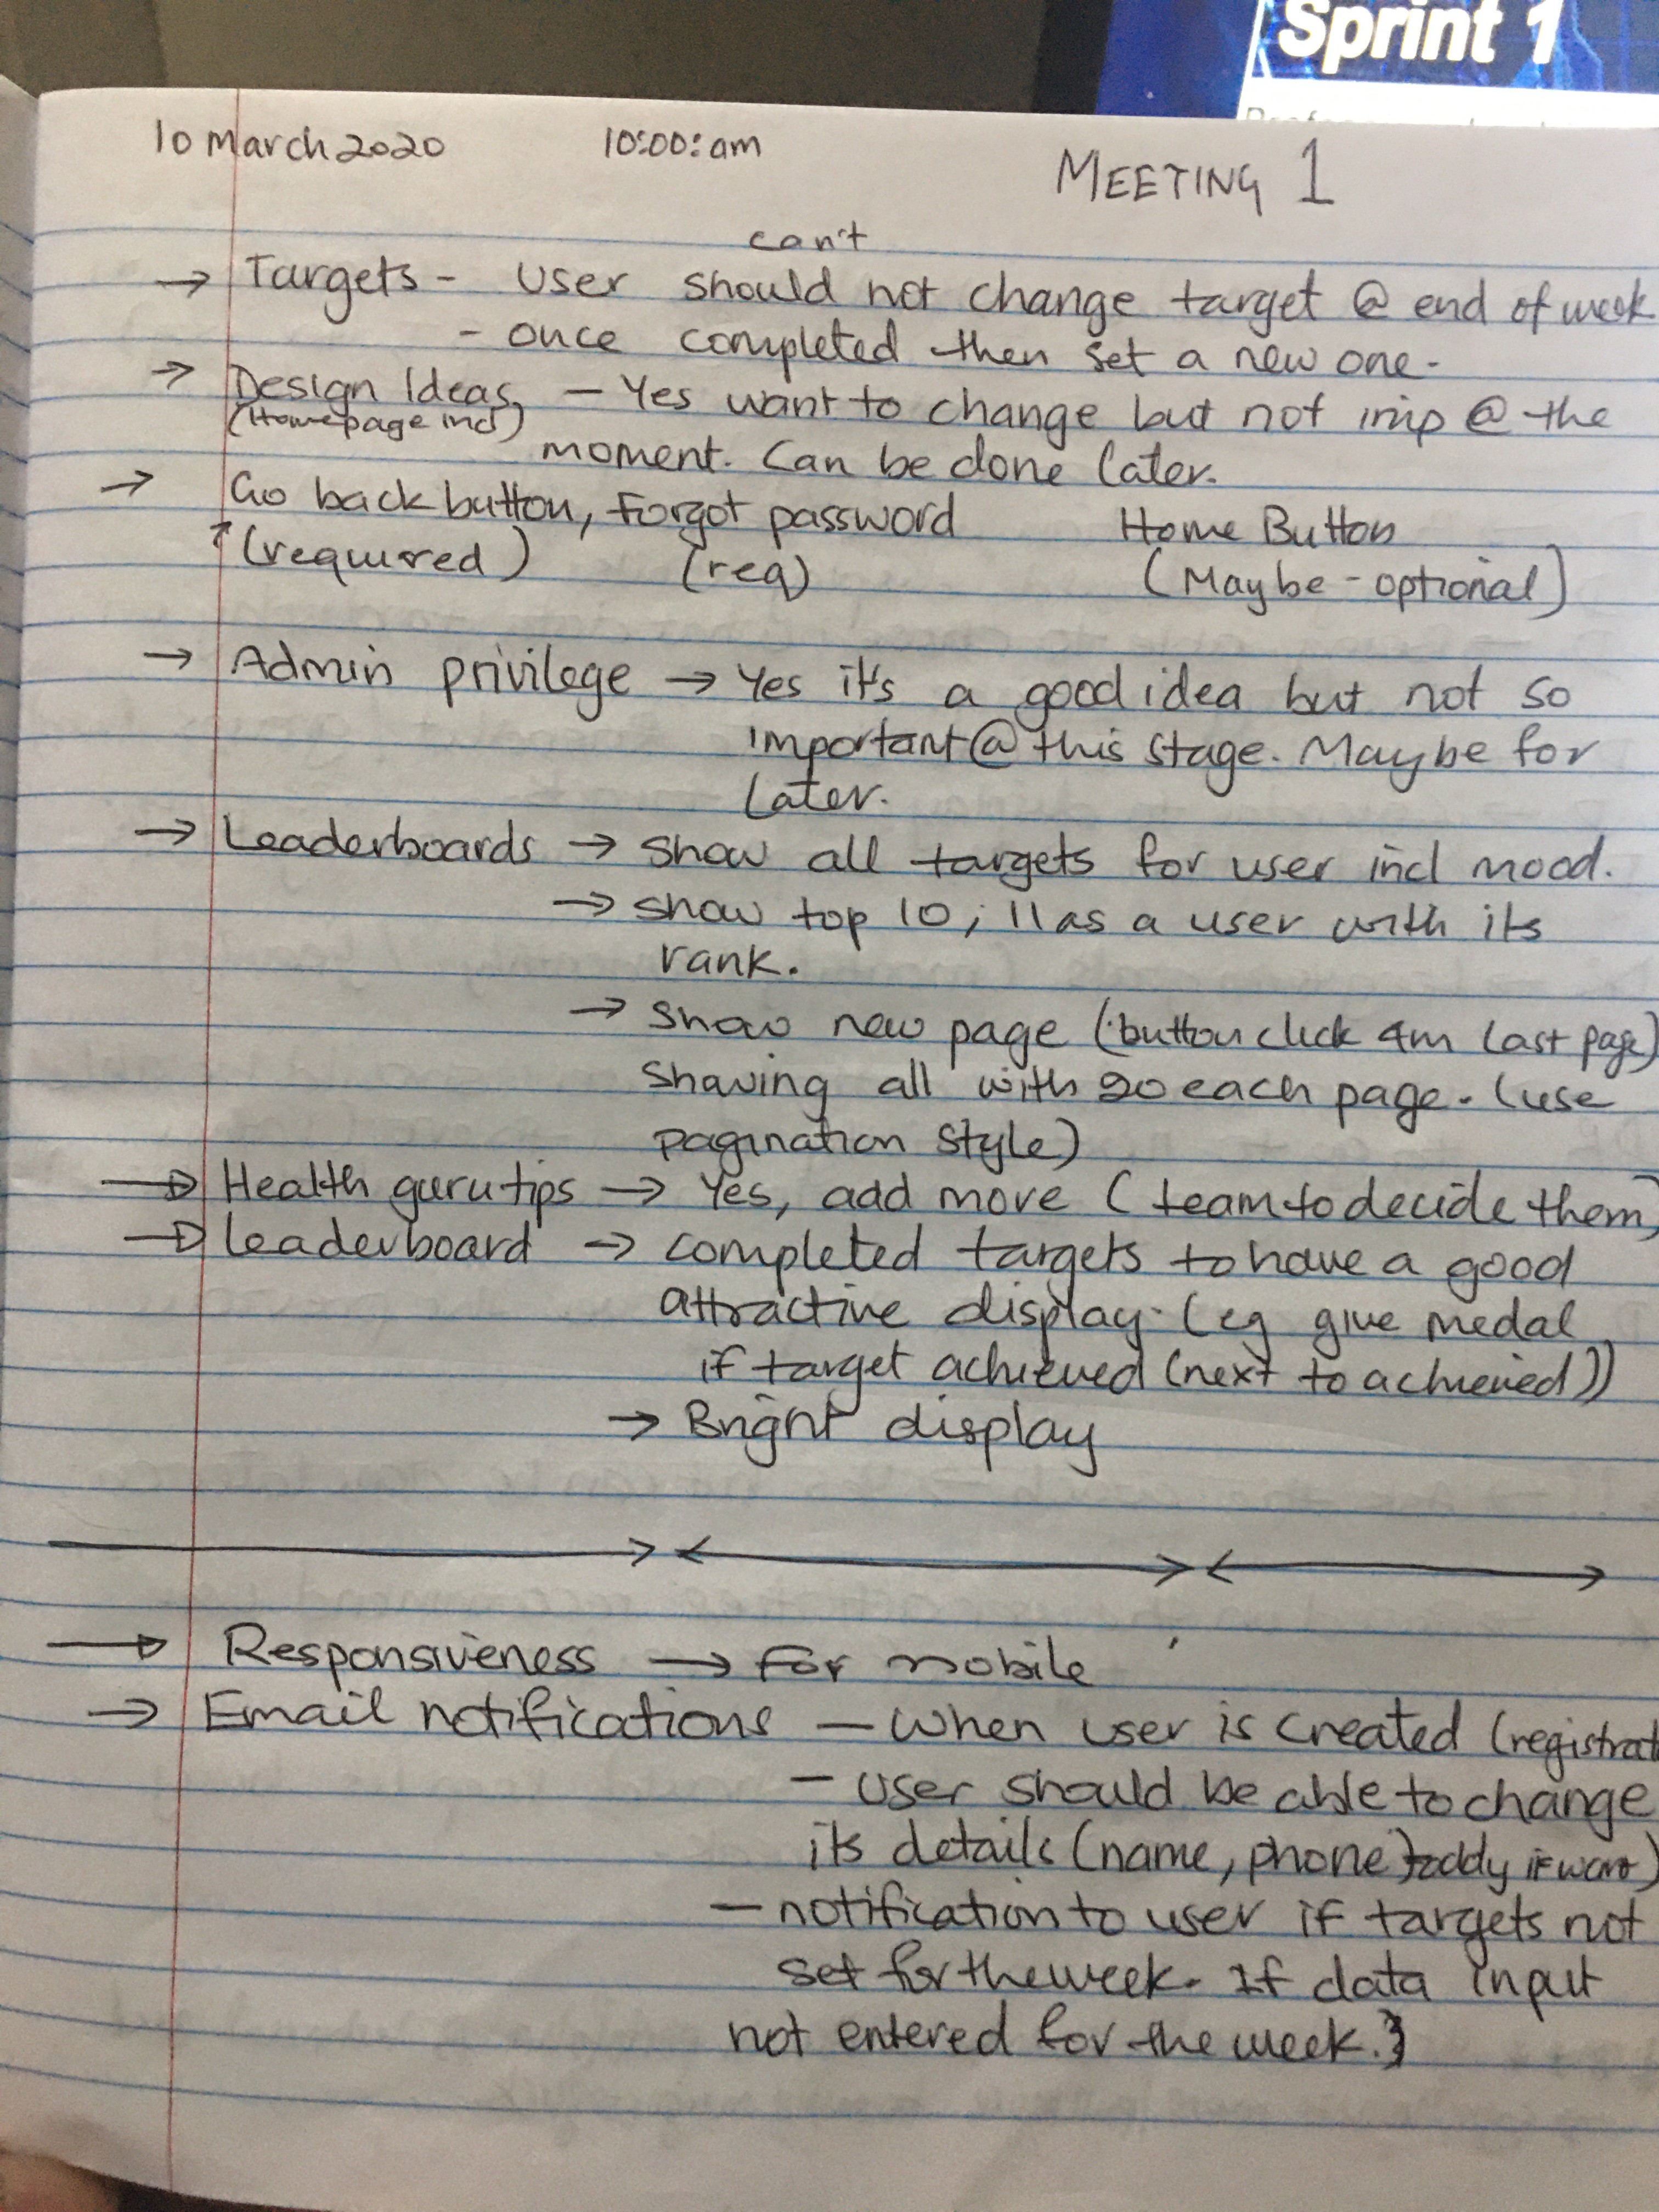 Sprint 1
10 March 2020 10:00:am MEETING 1
can't
→ Targets - User should not change target @ end of week
- once completed then set a new one.
→ Design Ideas - Yes want to change but not imp @ the
(Homepage incl)
moment. Can be done later.
→ Go back button, Forgot password Home Button
(required) (req) (Maybe - optional)
→ Admin privilege → Yes it's a good idea but not so
important @ this stage. Maybe for
later.
→ Leaderboards → show all targets for user incl mood.
→ show top 10, 11 as a user with its
rank.
→ show new page (button click 4m last page)
showing all with 20 each page. (use
pagination style)
→ Health guru tips → Yes, add more (team to decide them)
→ leaderboard → completed targets to have a good
attractive display. (eg give medal
if target achieved (next to achieved))
→ Bright display
→ Responsiveness → For mobile
→ Email notifications - When user is created (registrat
- user should be able to change
its details (name, phone) if want)
- notification to user if targets not
set for the week. If data input
not entered for the week.}